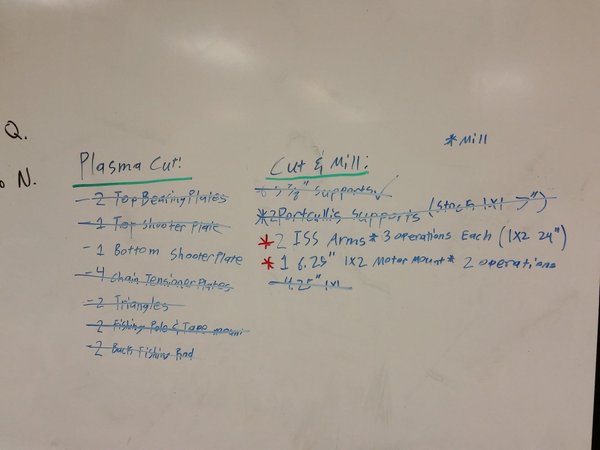 Q.
N.
* Mill
Plasma Cut:
- 2 Top Bearing Plates
- 1 Top Shooter Plate
- 1 Bottom Shooter Plate
- 4 Chain Tensioner Plates
- 2 Triangles
- 2 Fishing Pole & Tape mount
- 2 Back Fishing Rod
Cut & Mill:
Supports ✓
*2 Portcullis Supports (Stock 1x1 5")
*2 ISS Arms * 3 operations Each (1X2 24")
* 1 6.25" 1X2 Motor Mount * 2 operations
- 4.25" 1x1